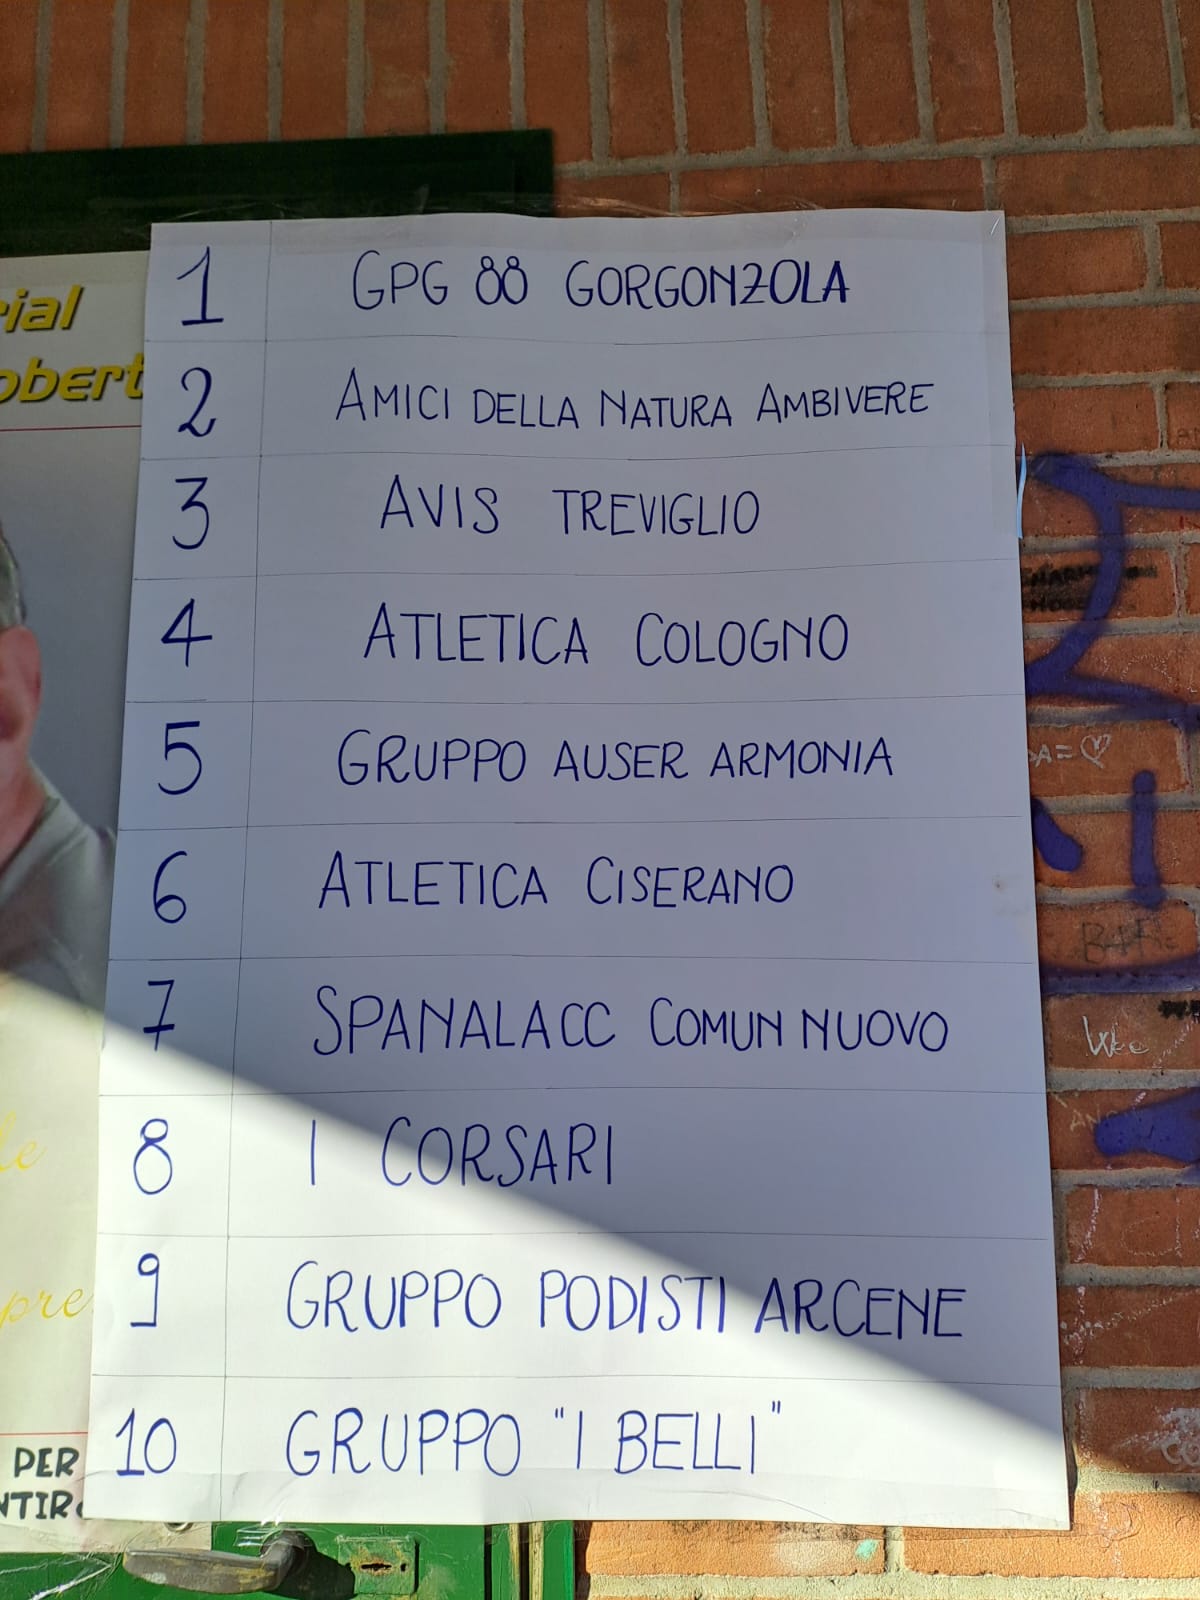 rial
obert
1 GPG 88 GORGONZOLA
2 AMICI DELLA NATURA AMBIVERE
3 AVIS TREVIGLIO
4 ATLETICA COLOGNO
5 GRUPPO AUSER ARMONIA
6 ATLETICA CISERANO
7 SPANALACC COMUN NUOVO
8 I CORSARI
9 GRUPPO PODISTI ARCENE
10 GRUPPO "I BELLI"
le
pre
PER
NTIR